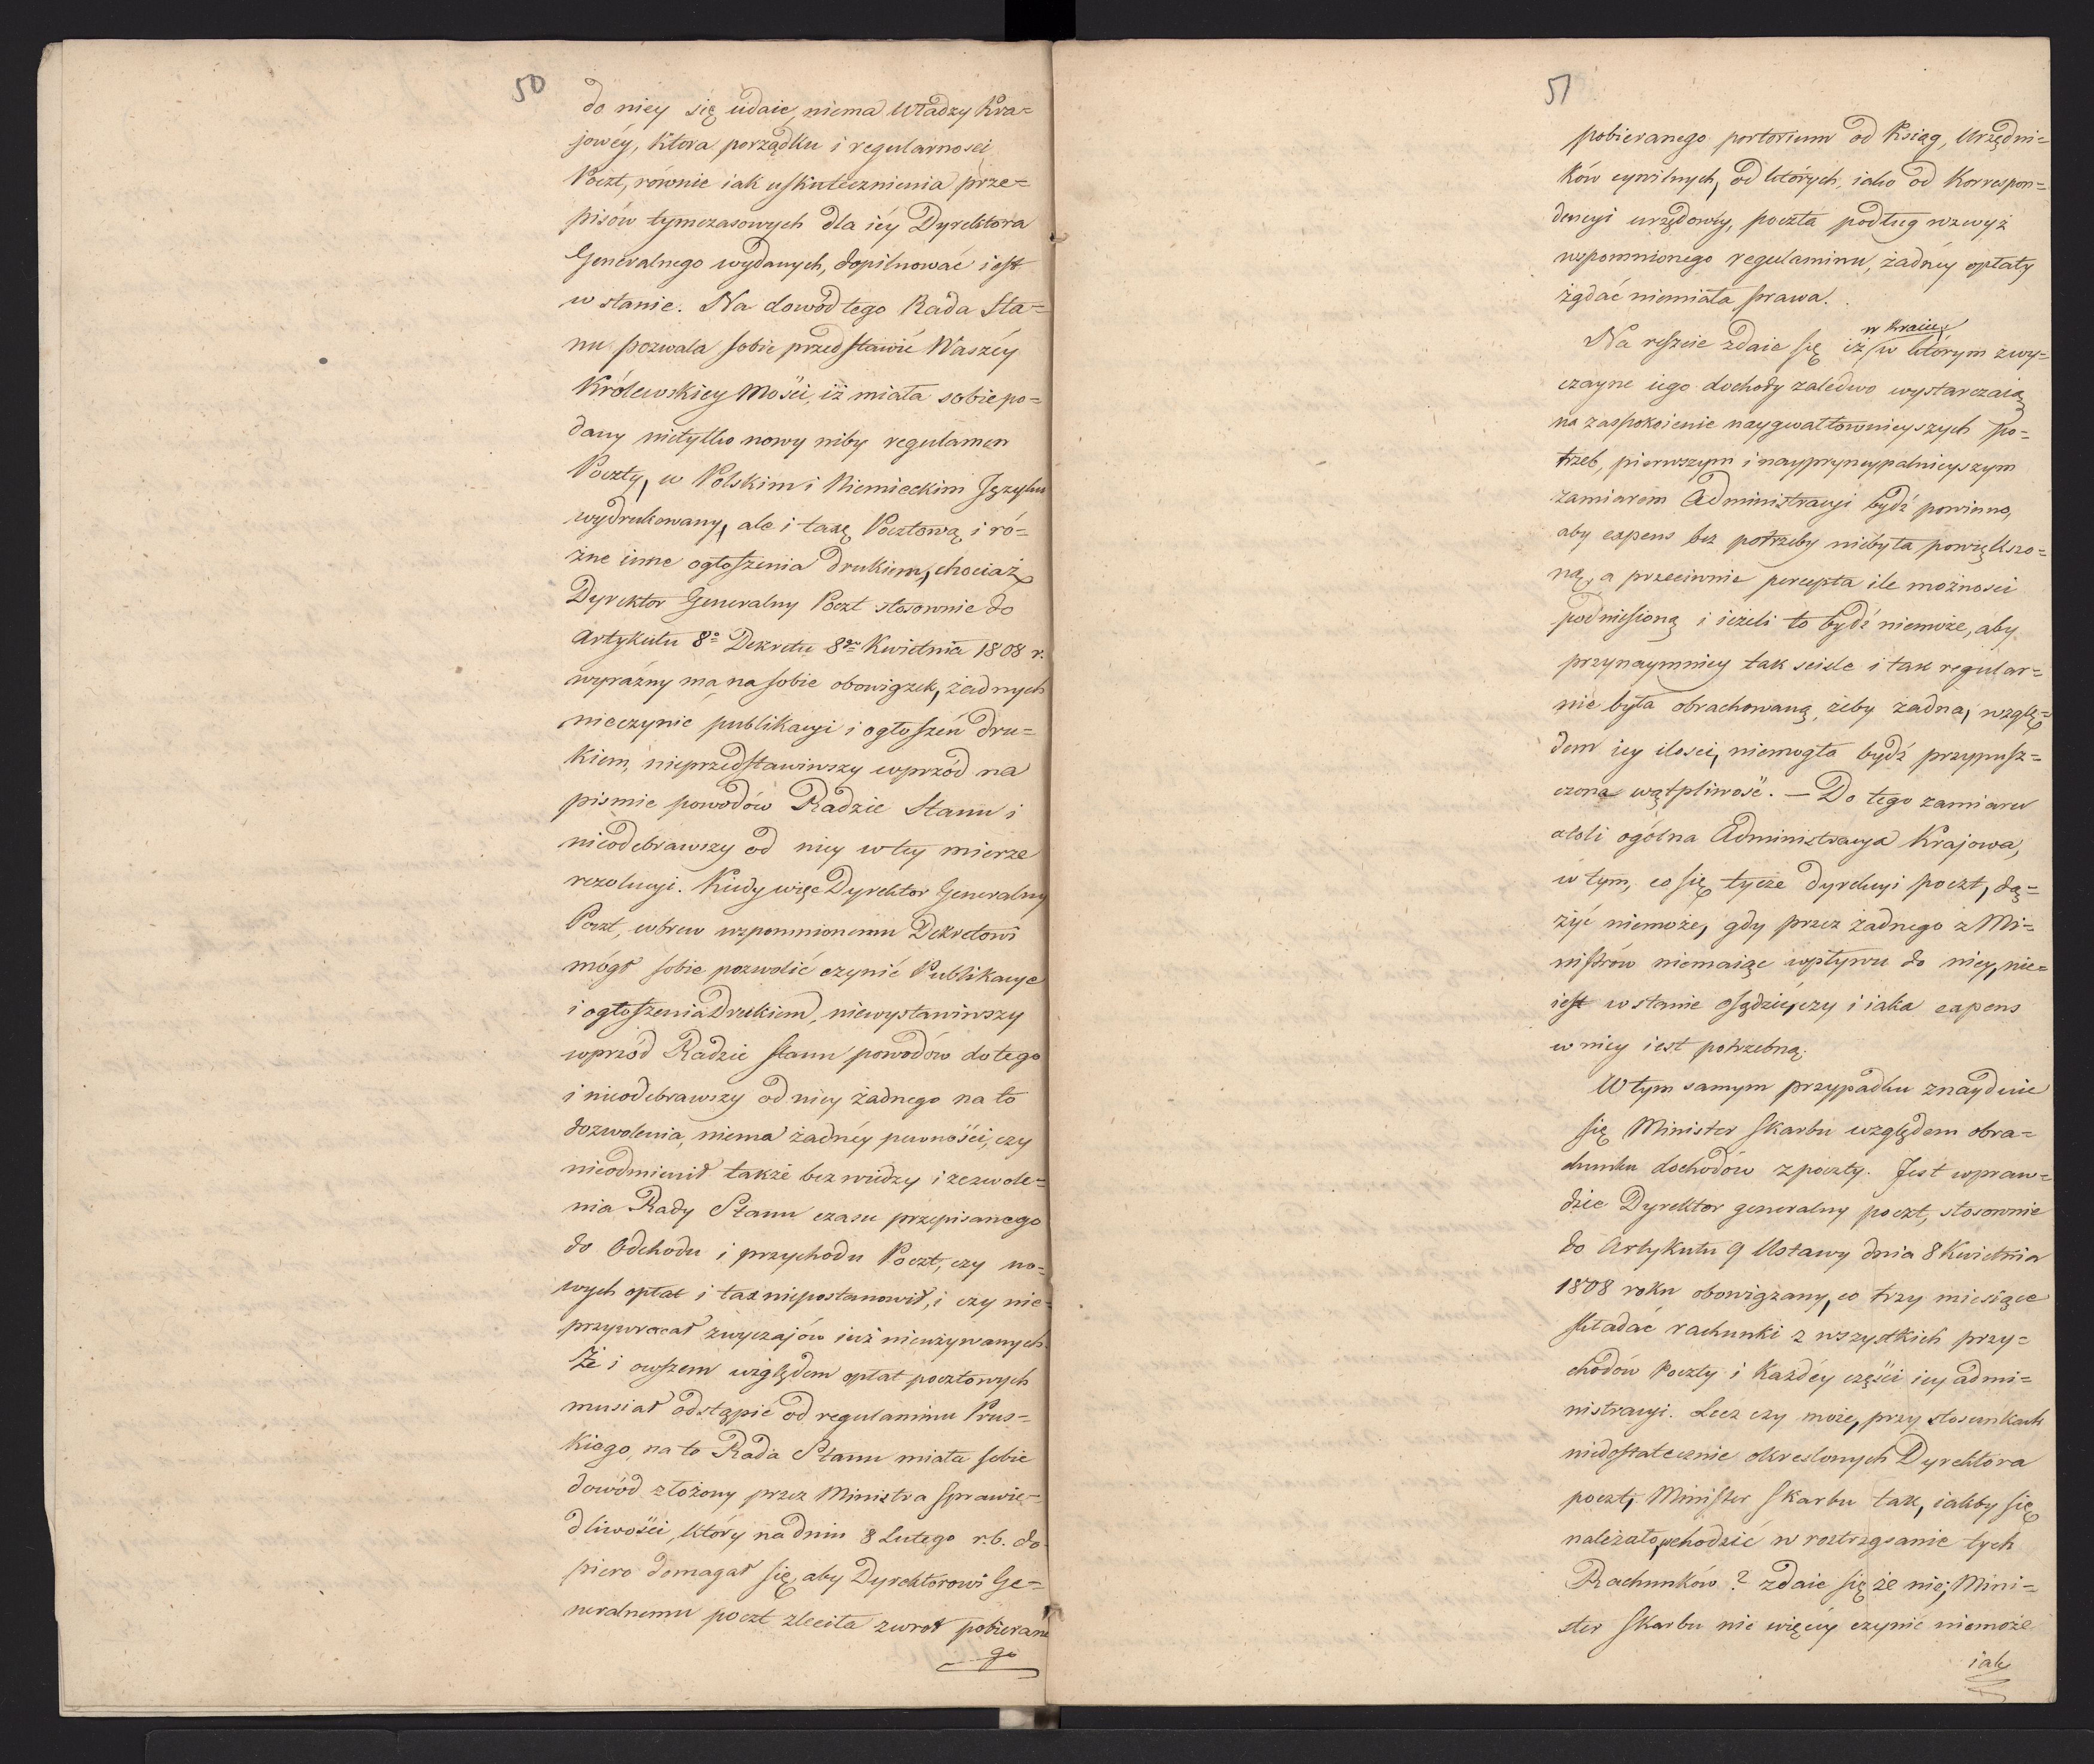 50
do niey się udaie, niema Władzy Kra=
jowéy, ktora porządku i regularnosci
Poczt, równie iak uskutecznienia prze=
pisów tymczasowych dla iéy Dyrektora
Generalnego wydanych, dopilnować iest
w stanie. Na dowód tego Rada Sta=
nu pozwala sobie przedstawić Waszéy
Królewskiey Mości, iż miała sobie po=
dany nietylko nowy niby regulamen
Poczty, w Polskim i Niemieckim Języku
wydrukowany, ale i taxę Pocztową i ró=
żne inne ogłoszenia drukiem, chociaż
Dyrektor Generalny Poczt stosownie do
Artykułu 8º Dekretu 8go Kwietnia 1808 r.
wyraźny ma na sobie obowiązek, żadnych
nieczynić publikacyi i ogłoszeń dru=
kiem, nieprzedstawiwszy wprzód na
pismie powodów Radzie Stanu i
nieodebrawszy od niey w tey mierze
rezolucyi. Kiedy więc Dyrektor Generalny
Poczt, wbrew wzpomnionemu Dekretowi
mógł sobie pozwolić czynić Publikacye
i ogłoszenia Drukiem, niewystawiwszy
wprzód Radzie Stanu powodów do tego
i nieodebrawszy od niey żadnego na to
dozwolenia, niema żadnéy pewności, czy
nieodmienił także bez wiedzy i zezwole=
nia Rady Stanu czasu przepisanego
do Odchodu i przychodu Poczt, czy no=
wych opłat i tax niepostanowił, i czy nie=
przywracał zwyczajów iuż nieużywanych.
Że i owszem względem opłat pocztowych
musiał odstąpić od regulaminu Prus=
kiego, na to Rada Stanu miała sobie
dowód złożony przez Ministra Sprawie=
dliwości, który na dniu 8 Lutego r. b. do=
piero domagał się, aby Dyrektorowi Ge=
neralnemu poczt zleciła zwrot pobierane
go
51
pobieranego portorium od Ksiąg, Urzędni=
ków cywilnych, od których, iako od Korrespon=
dencyi urzędowéy, poczta podług wzwyż
wspomnionego regulaminu, żadnéy opłaty
żądać niemiała prawa.
w Kraiu,
Na reszcie zdaie się iż w którym zwy=
czayne iego dochody zaledwo wystarczaią
na zaspokoienie naygwałtownieyszych po=
trzeb, pierwszym i nayprincypalnieyszym
zamiarem Administracyi bydź powinno,
aby expens bez potrzeby niebyła powiększo=
ną, a przeciwnie percepta ile możnosci
podniesioną i ieżeli to bydź niemoże, aby
przynaymniey tak scisle i tak regular=
nie była obrachowaną, żeby żadna, wzglę=
dem iey ilosci, niemogła bydź przypusz=
czona wątpliwość. — Do tego zamiaru
atoli ogólna Administracya Krajowa,
w tym, co się tycze Dyrekcyi poczt, dą=
żyć niemoże, gdy przez żadnego z Mi=
nistrów niemaiąc wpływu do niey, nie=
iest w stanie osądzić, czy i iaka expens
w niey iest potrzebną.
W tym samym przypadku znayduie
się Minister Skarbu względem obra=
chunku dochodów z poczty. Jest wpraw=
dzie Dyrektor generalny poczt, stosownie
do Artykułu 9 Ustawy dnia 8 Kwietnia
1808 roku obowiązany, co trzy miesiące
składać rachunki z wszystkich przy=
chodów Poczty i Każdéy części iey admi=
nistracyi. Lecz czy może, przy stosunkach
niedostatecznie okreslonych Dyrektora
poczt, Minister Skarbu tak, iakby się
należało, wchodzić w roztrząsanie tych
Rachunków? zdaie się że nie; Mini=
ster Skarbu nic więcéy czynić niemoże
iak